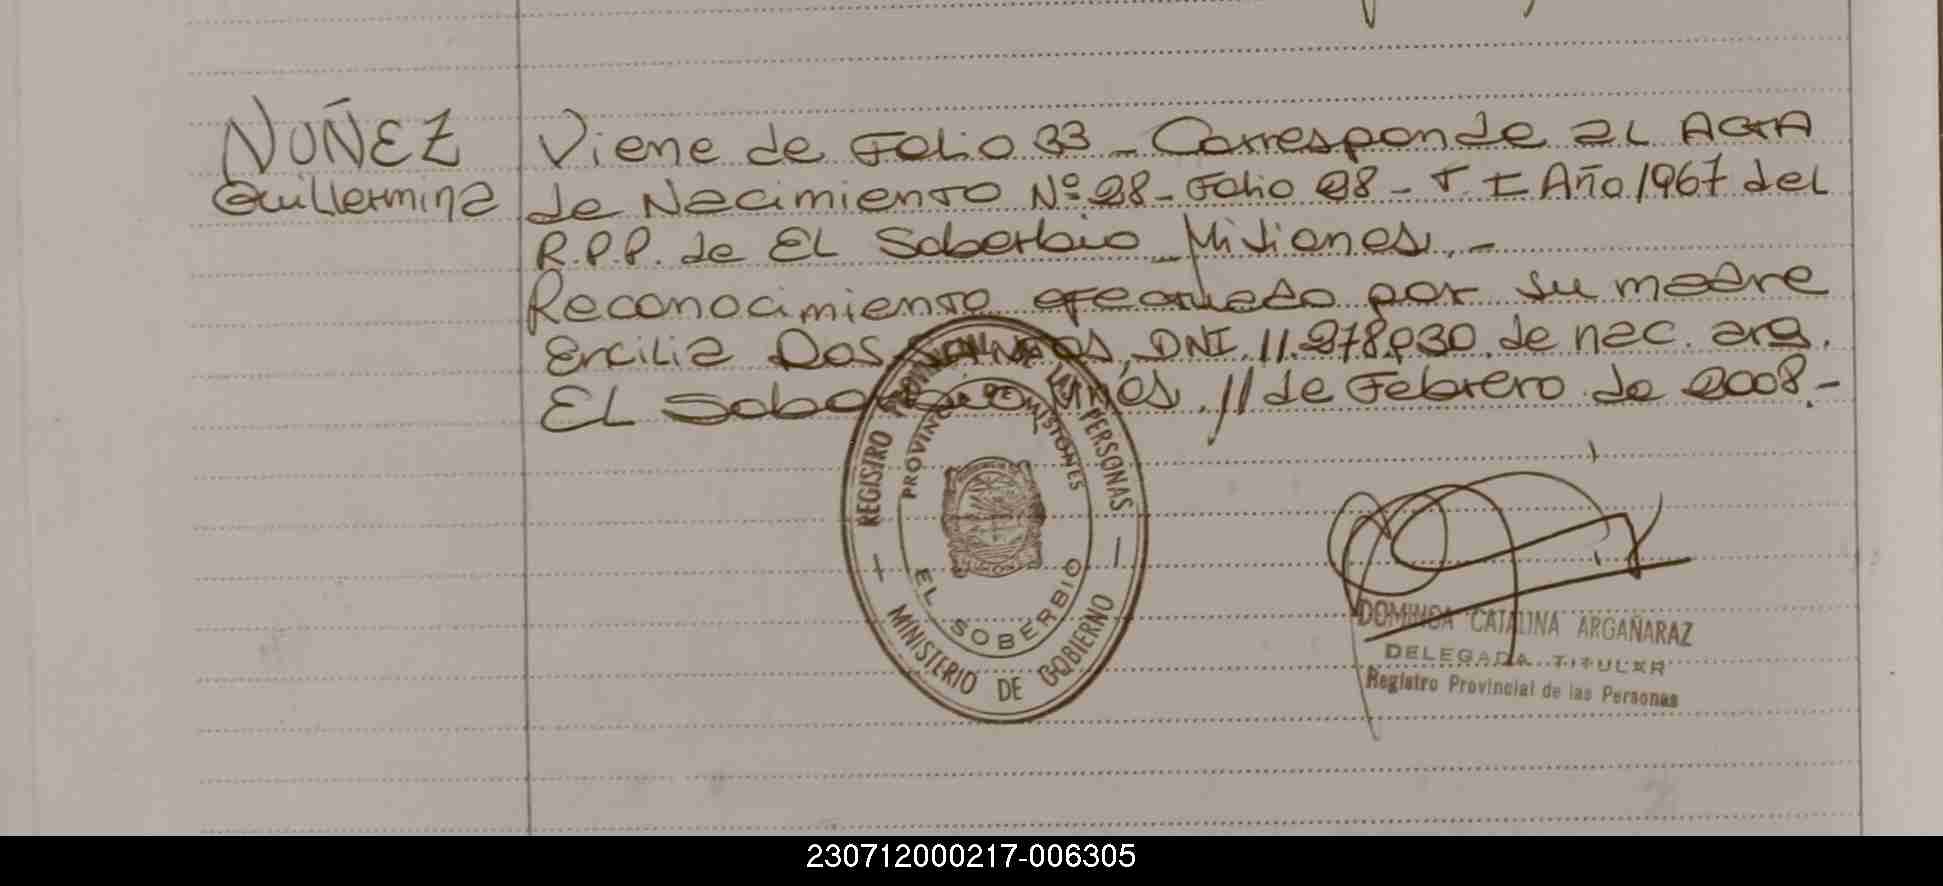 NUÑEZ
Guillermina
Viene de Folio 33 - Corresponde al ACTA
de Nacimiento Nº 28 - Folio 28 - T. I Año 1967 del
R.P.P. de El Soberbio Misiones. -
Reconocimiento efectuado por su madre
Ercilia Dos DNI 11.278.030 de nac. arg.
El Soberbio Mnes, 11 de Febrero de 2008.-
REGISTRO PROVINCIAL DE LAS PERSONAS
PROVINCIA DE MISIONES
EL SOBERBIO
MINISTERIO DE GOBIERNO
DOMINGA CATALINA ARGAÑARAZ
DELEGADA TITULAR
Registro Provincial de las Personas
230712000217-006305